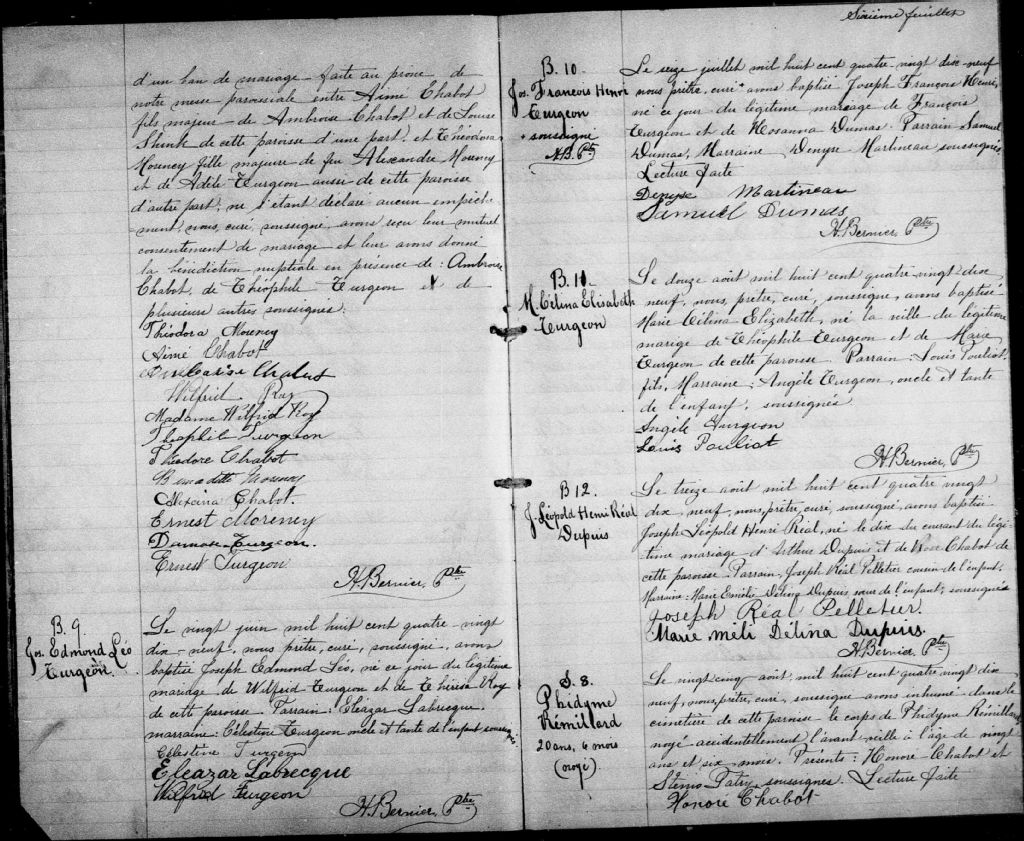 d'un ban de mariage faite au prone de
notre messe paroissiale entre Aimé Chabot
fils majeur de Ambroise Chabot et de Louise
Shink de cette paroisse d'une part, et Théodora
Mouney fille majeure de feu Alexandre Mouney
et de Adèle Turgeon aussi de cette paroisse
d'autre part; ne s'étant déclaré aucun empêche-
ment, nous, curé, soussigné, avons reçu leur mutuel
consentement de mariage et leur avons donné
la bénédiction nuptiale en présence de: Ambroise
Chabot, de Théophile Turgeon et de
plusieurs autres soussignés:
Théodora Mouney
Aimé Chabot
Chabot
Wilfrid Roy
Madame Wilfrid Roy
Théophile Turgeon
Théodore Chabot
Bernadette Morency
Alexina Chabot.
Ernest Moreney
Damase Turgeon.
Ernest Turgeon
H. Bernier, Ptre
B. 9.
Jos. Edmond Léo
Turgeon.
Le vingt juin mil huit cent quatre-vingt
dix-neuf, nous, prêtre, curé, soussigné, avons
baptisé Joseph Edmond Léo, né ce jour du légitime
mariage de Wilfrid Turgeon et de Thérèse Roy
de cette paroisse. Parrain: Eleazar Labrecque.
marraine: Célestine Turgeon oncle et tante de l'enfant soussignés
Célestine Turgeon
Eleazar Labrecque
Wilfrid Turgeon
H. Bernier, Ptre
Sixième feuillet
B. 10.
Jos. François Henri
Turgeon
+ soussigné
H.B. Ptr
Le seize juillet mil huit cent quatre-vingt dix-neuf
nous prêtre, curé + avons baptisé Joseph François Henri,
né ce jour du légitime mariage de François
Turgeon et de Hosanna Dumas. Parrain Samuel
Dumas, Marraine Denyse Martineau soussignés
Lecture faite
Denyse Martineau
Samuel Dumas
H. Bernier, Ptre
B. 11.
M. Célina Elisabeth
Turgeon
Le douze août mil huit cent quatre-vingt-dix
neuf, nous, prêtre, curé, soussigné, avons baptisé
Marie Célina Elizabeth, né la veille du légitime
mariage de Théophile Turgeon et de Marie
Turgeon de cette paroisse. Parrain: Louis Pouliot,
fils, Marraine: Angèle Turgeon, oncle et tante
de l'enfant, soussignés
Angèle Turgeon
Louis Pouliot
H. Bernier, Ptre
B 12.
J. Léopold Henri Réal
Dupuis
Le treize août mil huit cent quatre vingt
dix-neuf, nous, prêtre, curé, soussigné, avons baptisé
Joseph Léopold Henri Réal, né le dix du courant du légi-
time mariage d'Arthur Dupuis et de Rose Chabot de
cette paroisse. Parrain, Joseph Réal Pelletier cousin de l'enfant,
Marraine: Marie Emélie Délina Dupuis sœur de l'enfant, soussignés
Joseph Réal Pelletier.
Marie méli Délina Dupuis.
H. Bernier, Ptre
S. 8.
Phidyme
Rémillard
20 ans, 6 mois
(noyé)
Le vingt cinq août, mil huit cent quatre vingt dix
neuf, nous, prêtre, curé, soussigné avons inhumé dans le
cimetière de cette paroisse le corps de Phidyme Rémillard
noyé accidentellement l'avant-veille à l'âge de vingt
ans et six mois. Présents: Honoré Chabot et
Sténio Patry soussignés. Lecture faite
Honoré Chabot